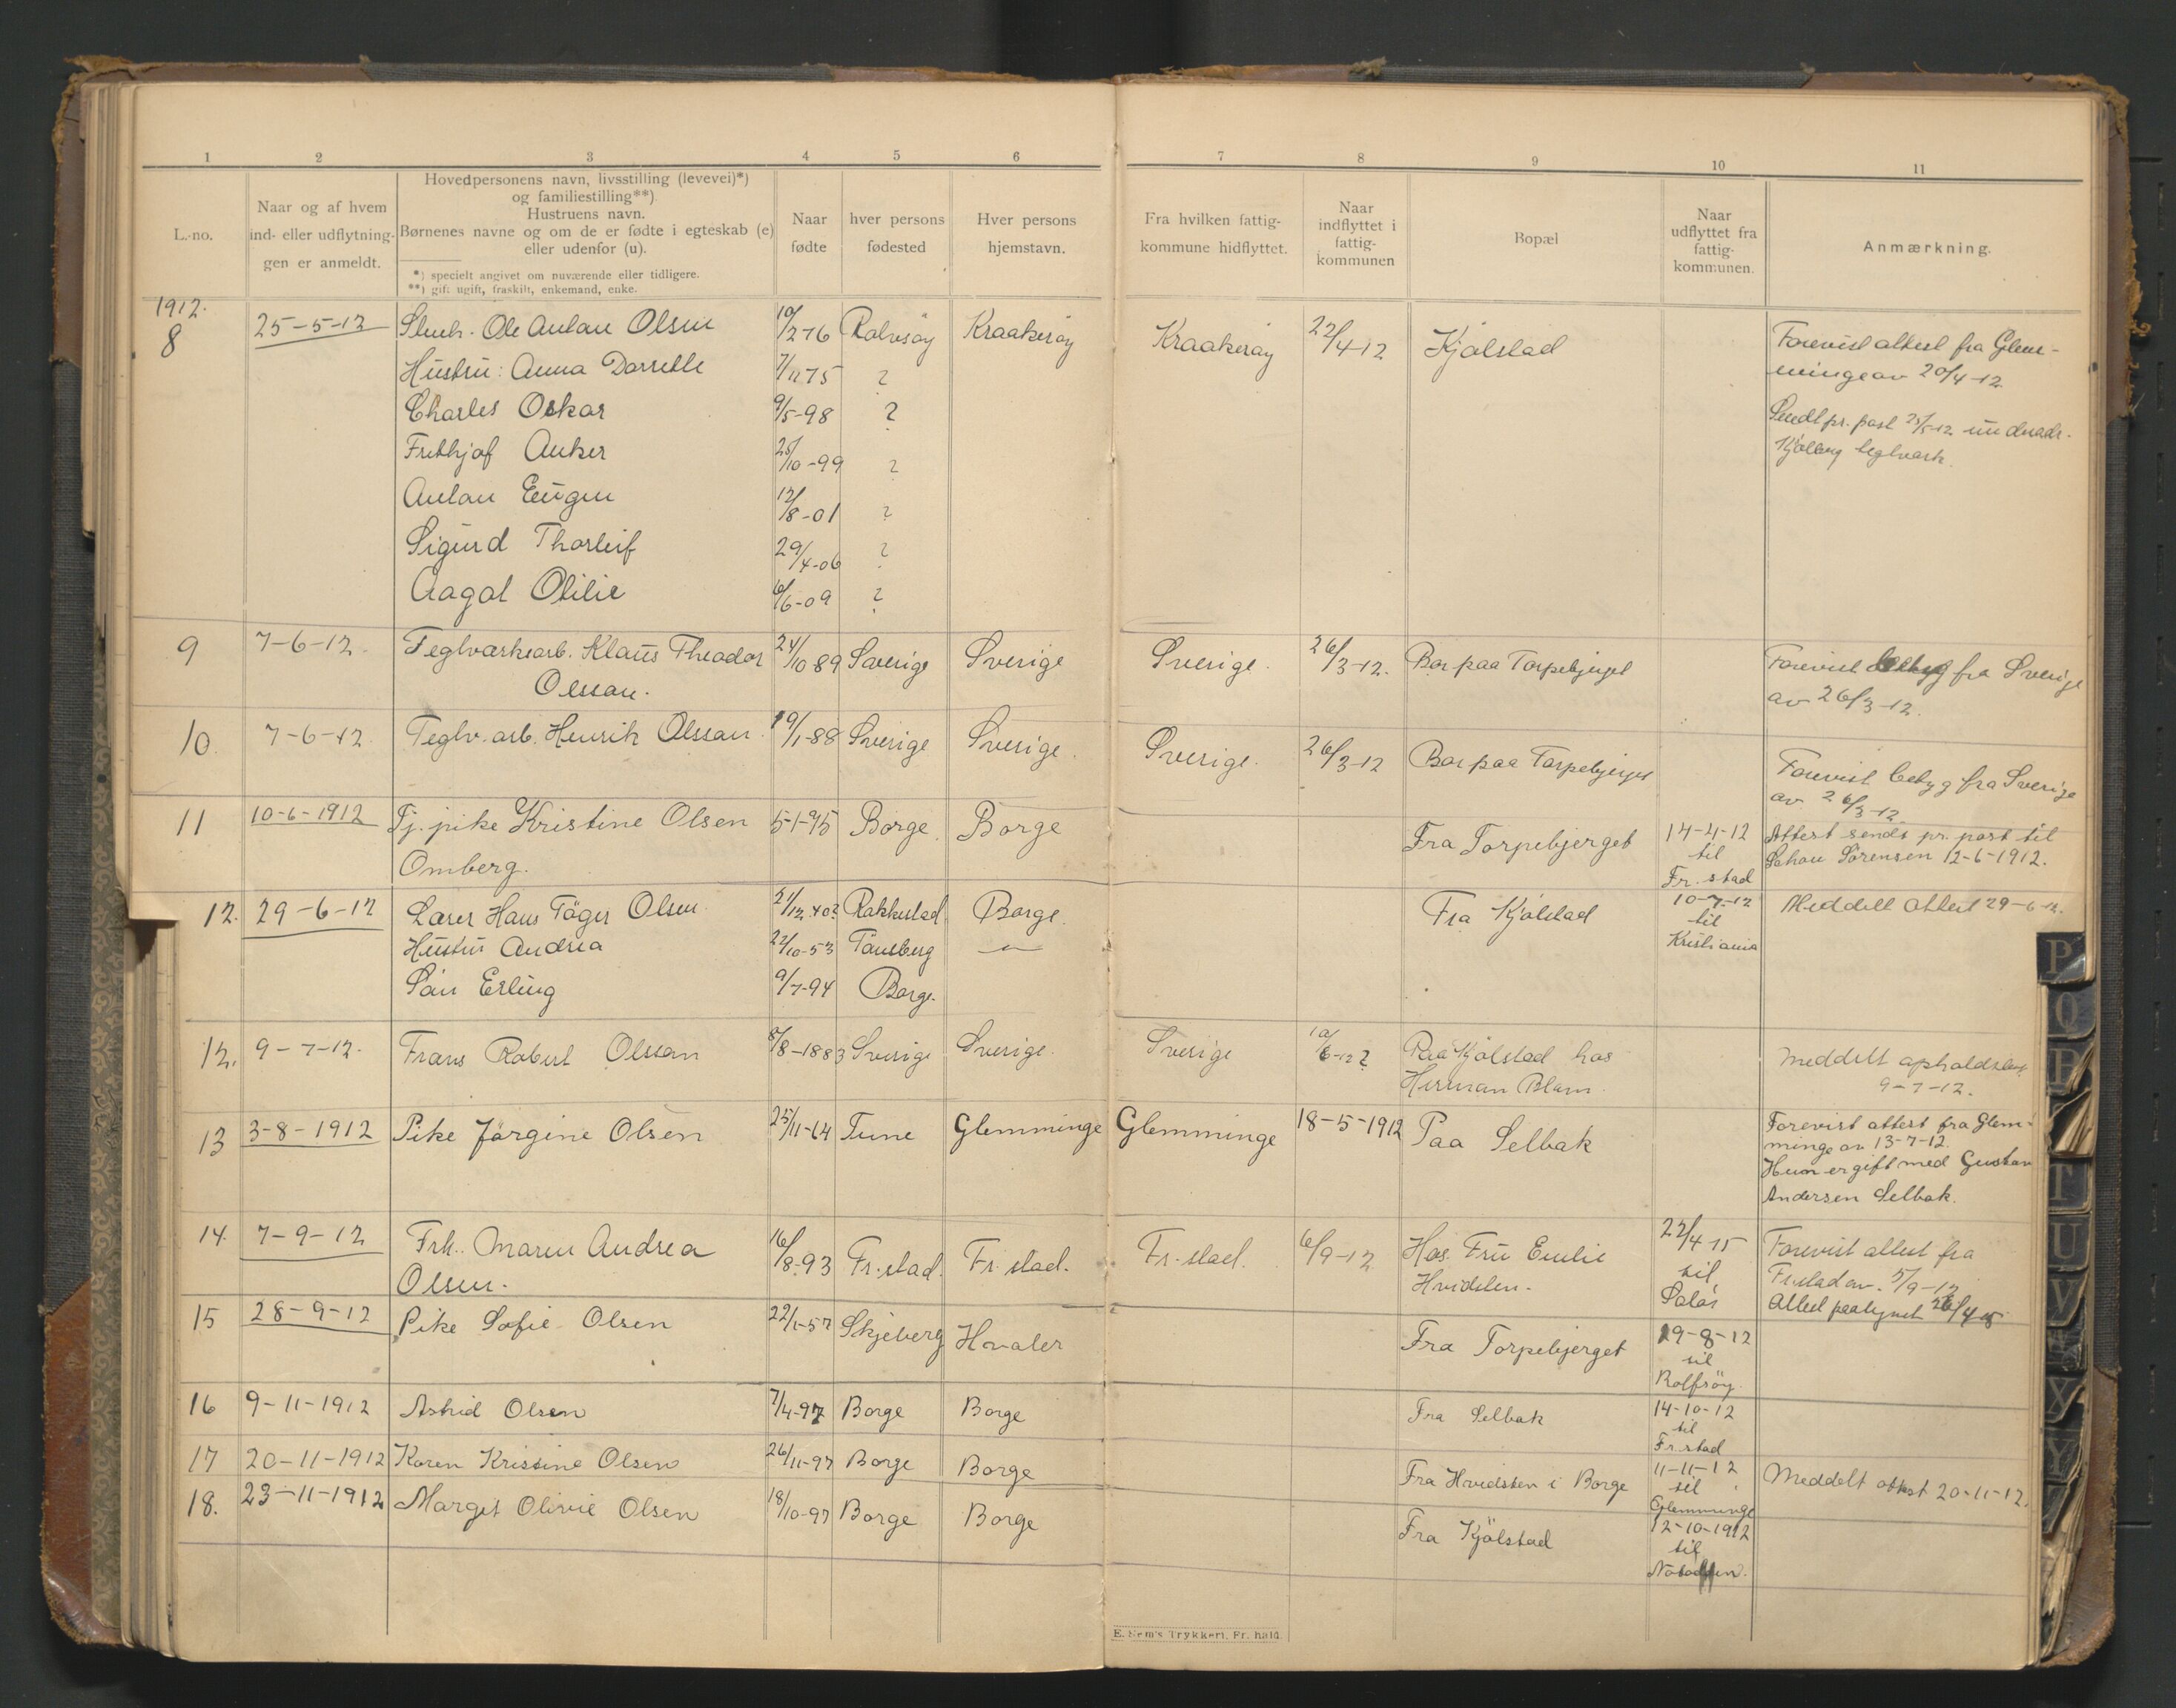 1 2 3 4 5 6 7 8 9 10 11
L.-no.
Naar og af hvem
ind- eller udflytnin-
gen er anmeldt.
Hovedpersonens navn, livsstilling (levevei)*)
og familiestilling**)
Hustruens navn.
Børnenes navne og om de er fødte i egteskab (e)
eller udenfor (u).
*) specielt angivet om nuværende eller tidligere.
**) gift ugift, fraskilt, enkemand, enke.
Naar
fødte
hver persons
fødested
Hver persons
hjemstavn.
Fra hvilken fattig-
kommune hidflyttet.
Naar
indflyttet i
fattig-
kommunen
Bopæl
Naar
udflyttet fra
fattig-
kommunen.
Anmærkning.
1912.
8 25-5-12 Ole Anton Olsen 19/2-76 Rolvsøy Kraakerøy Kraakerøy 22/4-12 Kjølstad Forevist attest fra Glem-
minge av 20/4-12.
Hustru: Anna Dorrette 7/11 75 ?
Charles Oskar 9/5-98 ?
Sendt pr. post 25/5-12
Kjølberg teglverk.
Frithjof Anker 25/10-99 ?
Anton Eugen 12/8-01 ?
Sigurd Thorleif 29/4-06 ?
Aagot Otilie 6/6-09 ?
9 7-6-12. Teglverksarb. Klaus Theodor 24/10 89 Sverige Sverige Sverige. 26/3-12. Bor paa Torpebjerget Forevist betyg fra Sverige
Olsson. av 26/3-12.
10. 7-6-12. Teglv.arb. Henrik Olsson. 19/1-88 Sverige Sverige. Sverige. 26/3-12 Bor paa Torpebjerget Forevist betyg fra Sverige
av 26/3-12.
11 10-6-1912 Tj. pike Kristine Olsen 5-1-95 Borge. Borge Fra Torpebjerget 14-4-12 Attest sendt pr. post til
Omberg. til Johan Sörensen 12-6-1912.
Fr.stad
12. 29-6-12 Lærer Hans Täger Olsen 21/12.40? Rakkestad Borge. Fra Kjølstad 10-7-12 Meddelt attest 29-6-12.
Hustru Andrea 22/10-53 Tønsberg — til
Kristiania
Søn Erling 9/7-94 Borge.
12. 9-7-12. Frans Robert Olsson 8/8-1883 Sverige Sverige. Sverige 10/6-12? Paa Kjølstad hos Meddelt opholdsbog
Herman Blom. 9-7-12.
13 3-8-1912 Pike Jörgine Olsen 25/11-64 Tune Glemminge Glemminge 18-5-1912 Paa Selbak Forevist attest fra Glem-
minge av 13-7-12.
Hun er gift med Gustav
Andersen Selbak.
14. 7-9-12 Frk. Maren Andrea 16/8-93 Fr.stad. Fr.stad. Fr.stad. 6/9-12 Hos Fru Emilie 22/4-15 Forevist attest fra
Olsen. Hvidsten. til Fr.stad av 5/9-12
Solør Attest paategnet 26/4 15
15 28-9-12 Pike Sofie Olsen 22/1-57 Skjeberg Hvaler Fra Torpebjerget 29-8-12
til
Rolfsöy.
16 9-11-1912 Astrid Olsen 7/4-97 Borge Borge Fra Selbak 14-10-12
til
Fr.stad
17 20-11-1912 Karen Kristine Olsen 26/11-97 Borge Borge Fra Hvidsten i Borge 11-11-12 Meddelt attest 20-11-12.
til
Glemminge
18. 23-11-1912 Margit Olivie Olsen 18/10-97 Borge Borge Fra Kjölstad 12-10-1912
til
Notodden.
E. Sem's Trykkeri, Fr.hald.
P
Q
R
T
U
V
X
Y